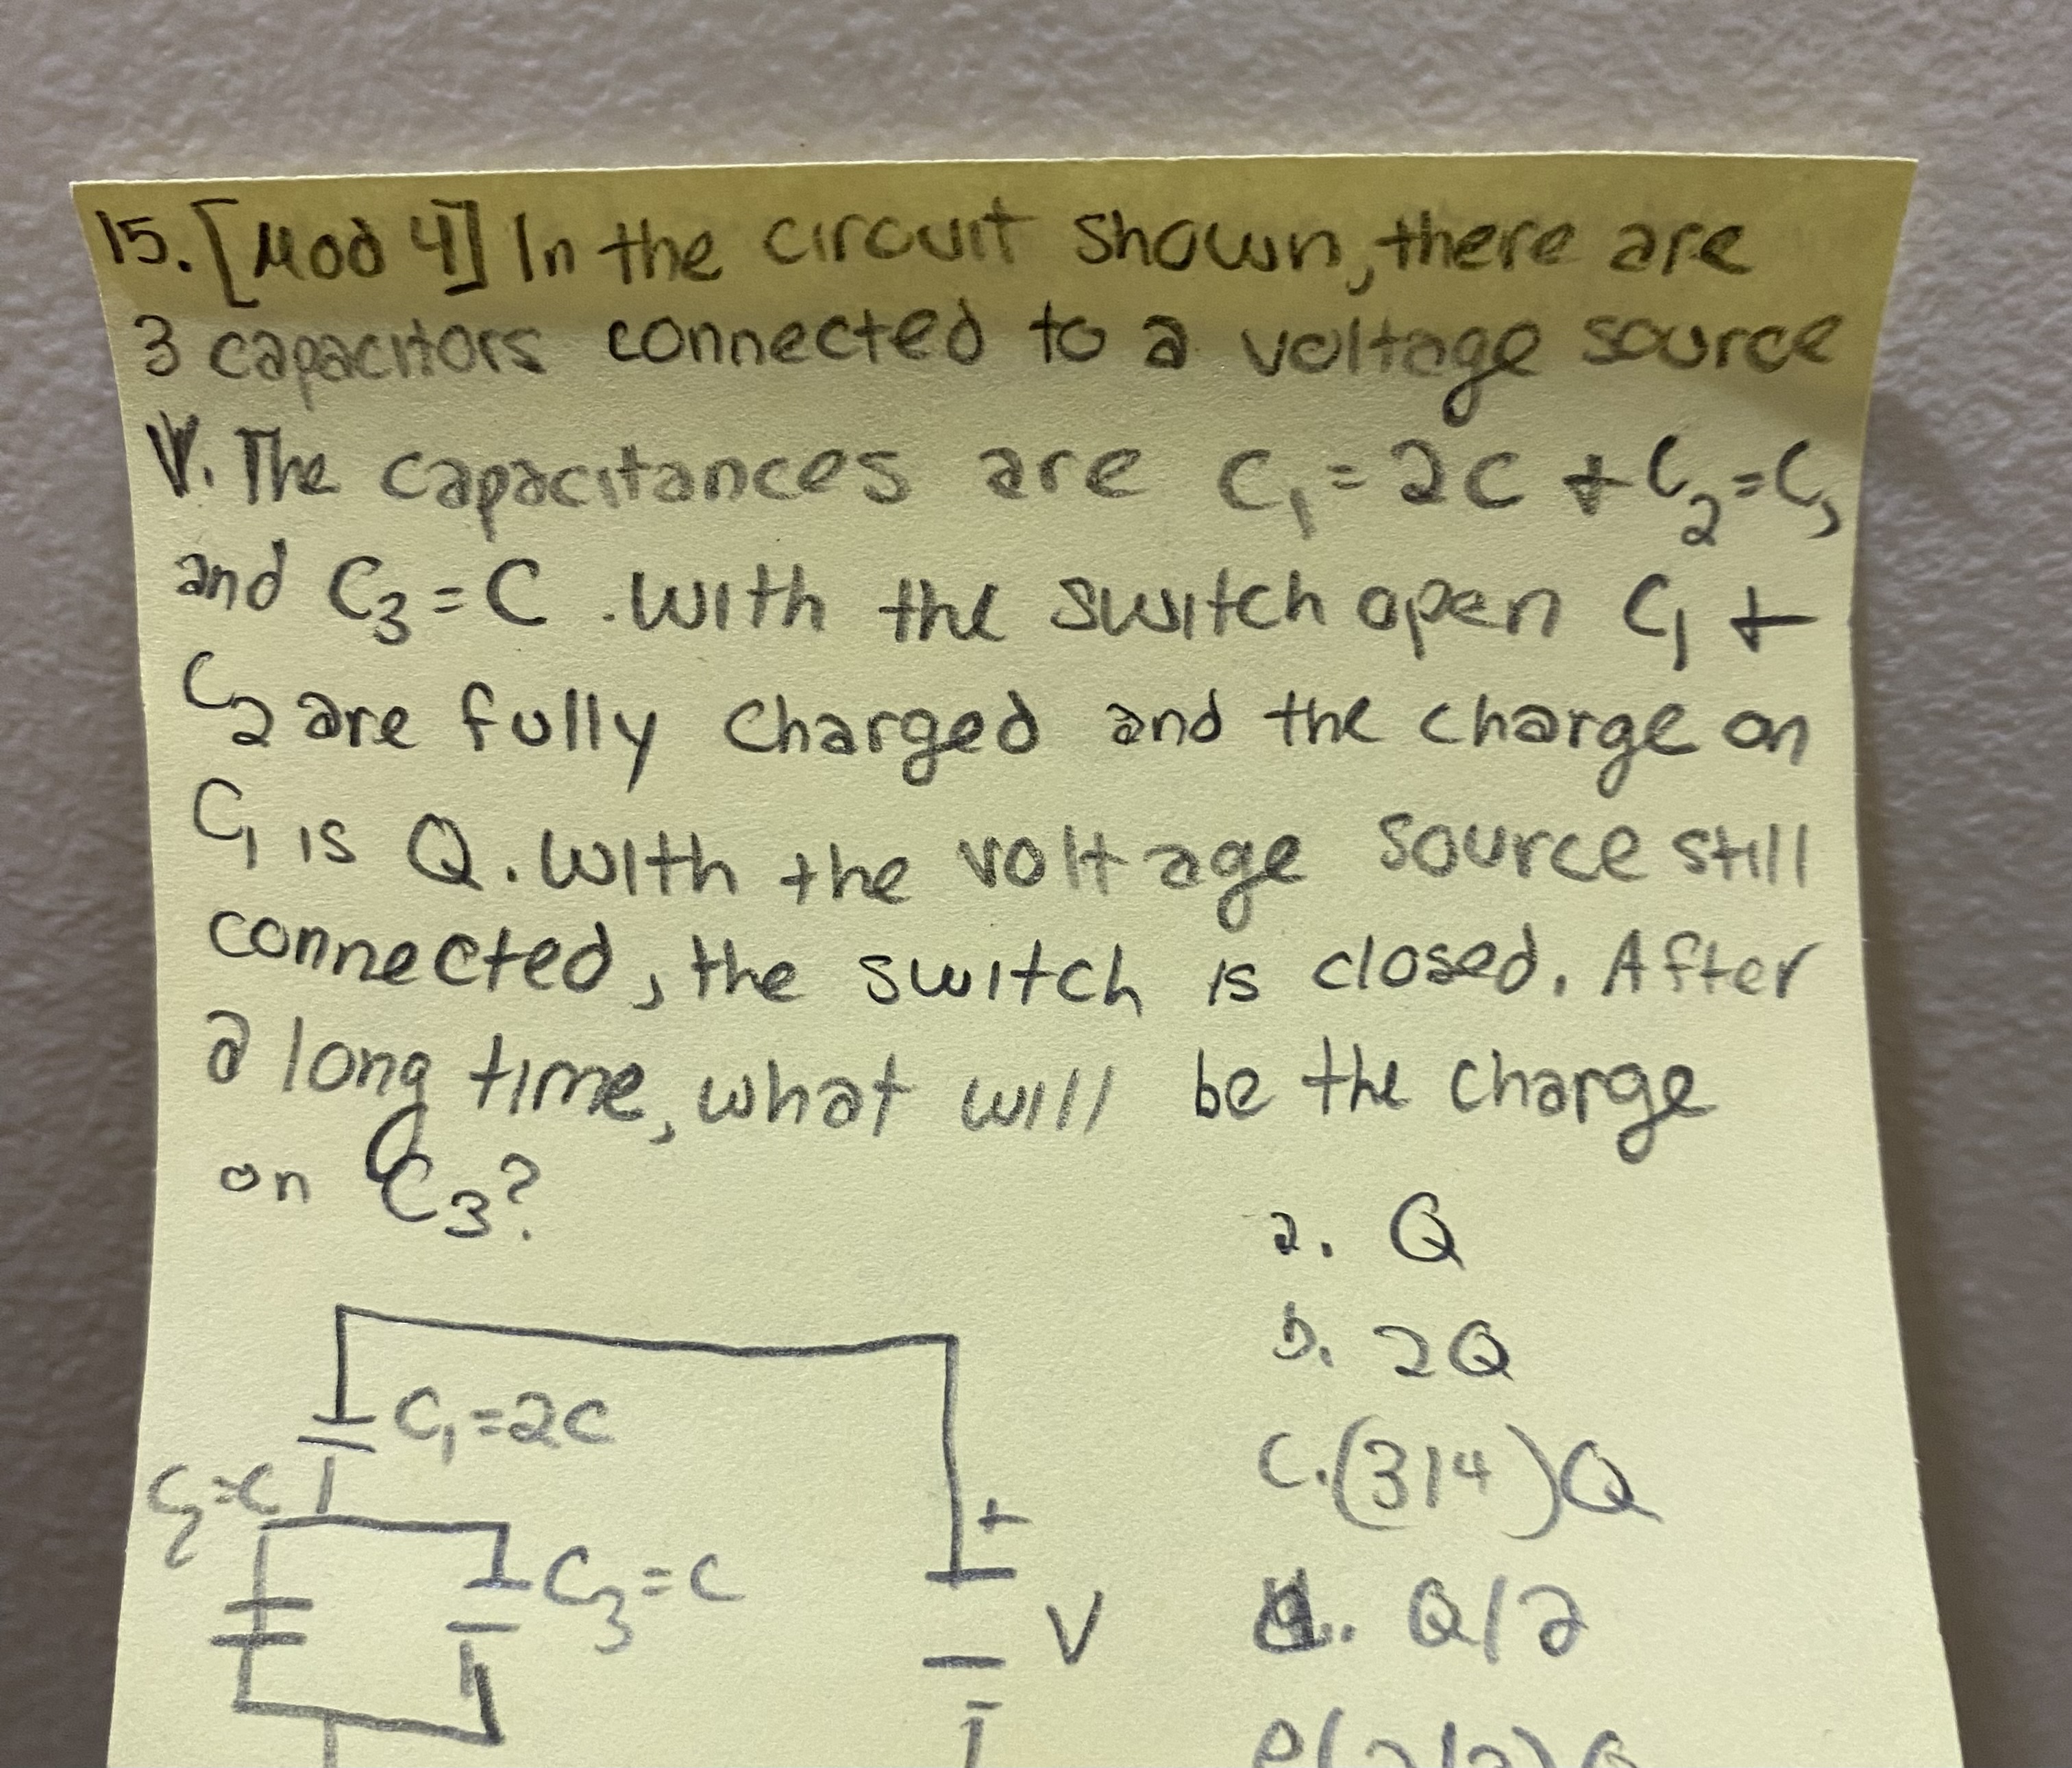 15. [Mod 4] In the circuit shown, there are
3 capacitors connected to a voltage source
V. The capacitances are C₁ = 2C + C₂ = C,
and C₃ = C. With the switch open C₁ +
C₂ are fully charged and the charge on
C₁ is Q. With the voltage source still
connected, the switch is closed. After
a long time, what will be the charge
on C₃?
a. Q
b. 2Q
c. (3/4)Q
d. Q/2
C₁ = 2C
C₂ = C
C₃ = C
+
V
-